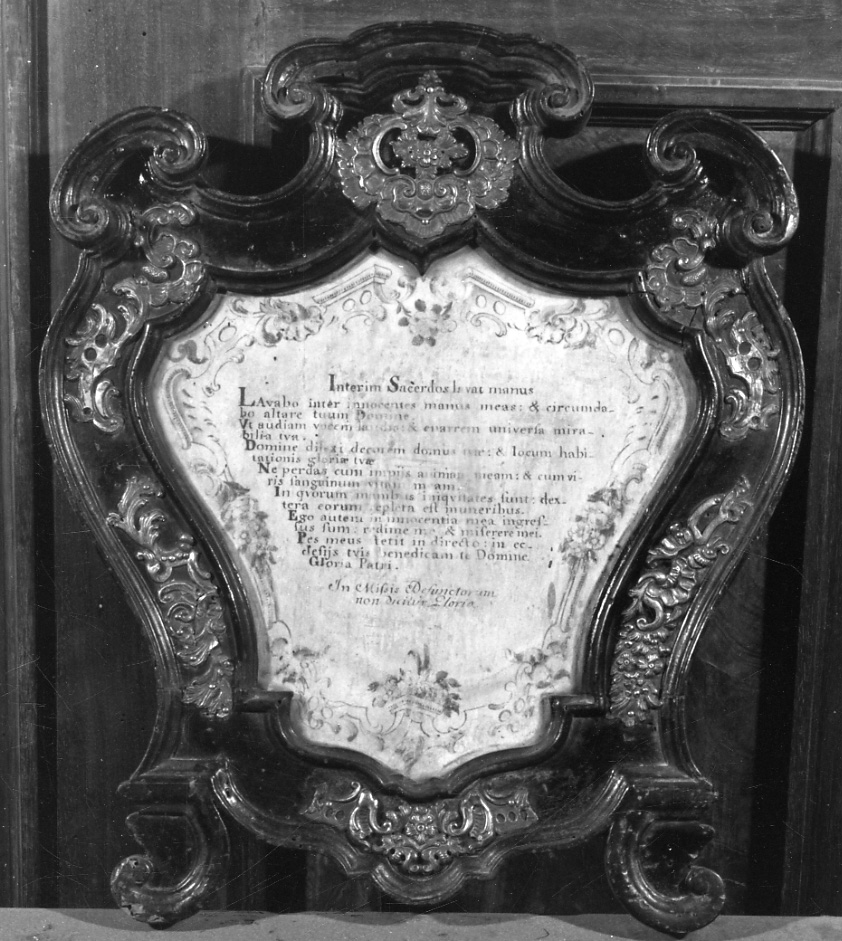 Interim Sacerdos lavat manus
LAvabo inter innocentes manus meas: & circumda-
bo altare tuum Domine.
Vt audiam vocem laudis: & enarrem universa mira-
bilia tva.
Domine dilexi decorem domus tuæ: & locum habi-
tationis gloriæ tvæ
Ne perdas cum impijs animam meam: & cum vi-
ris sanguinum vitam meam.
In qvorum manibus iniqvitates sunt: dex-
tera eorum repleta est muneribus.
Ego autem in innocentia mea ingres-
sus sum: redime me & miserere mei.
Pes meus stetit in directo: in ec-
clesijs tvis benedicam te Domine.
Gloria Patri.
In Missis Defunctorum
non dicitur Gloria